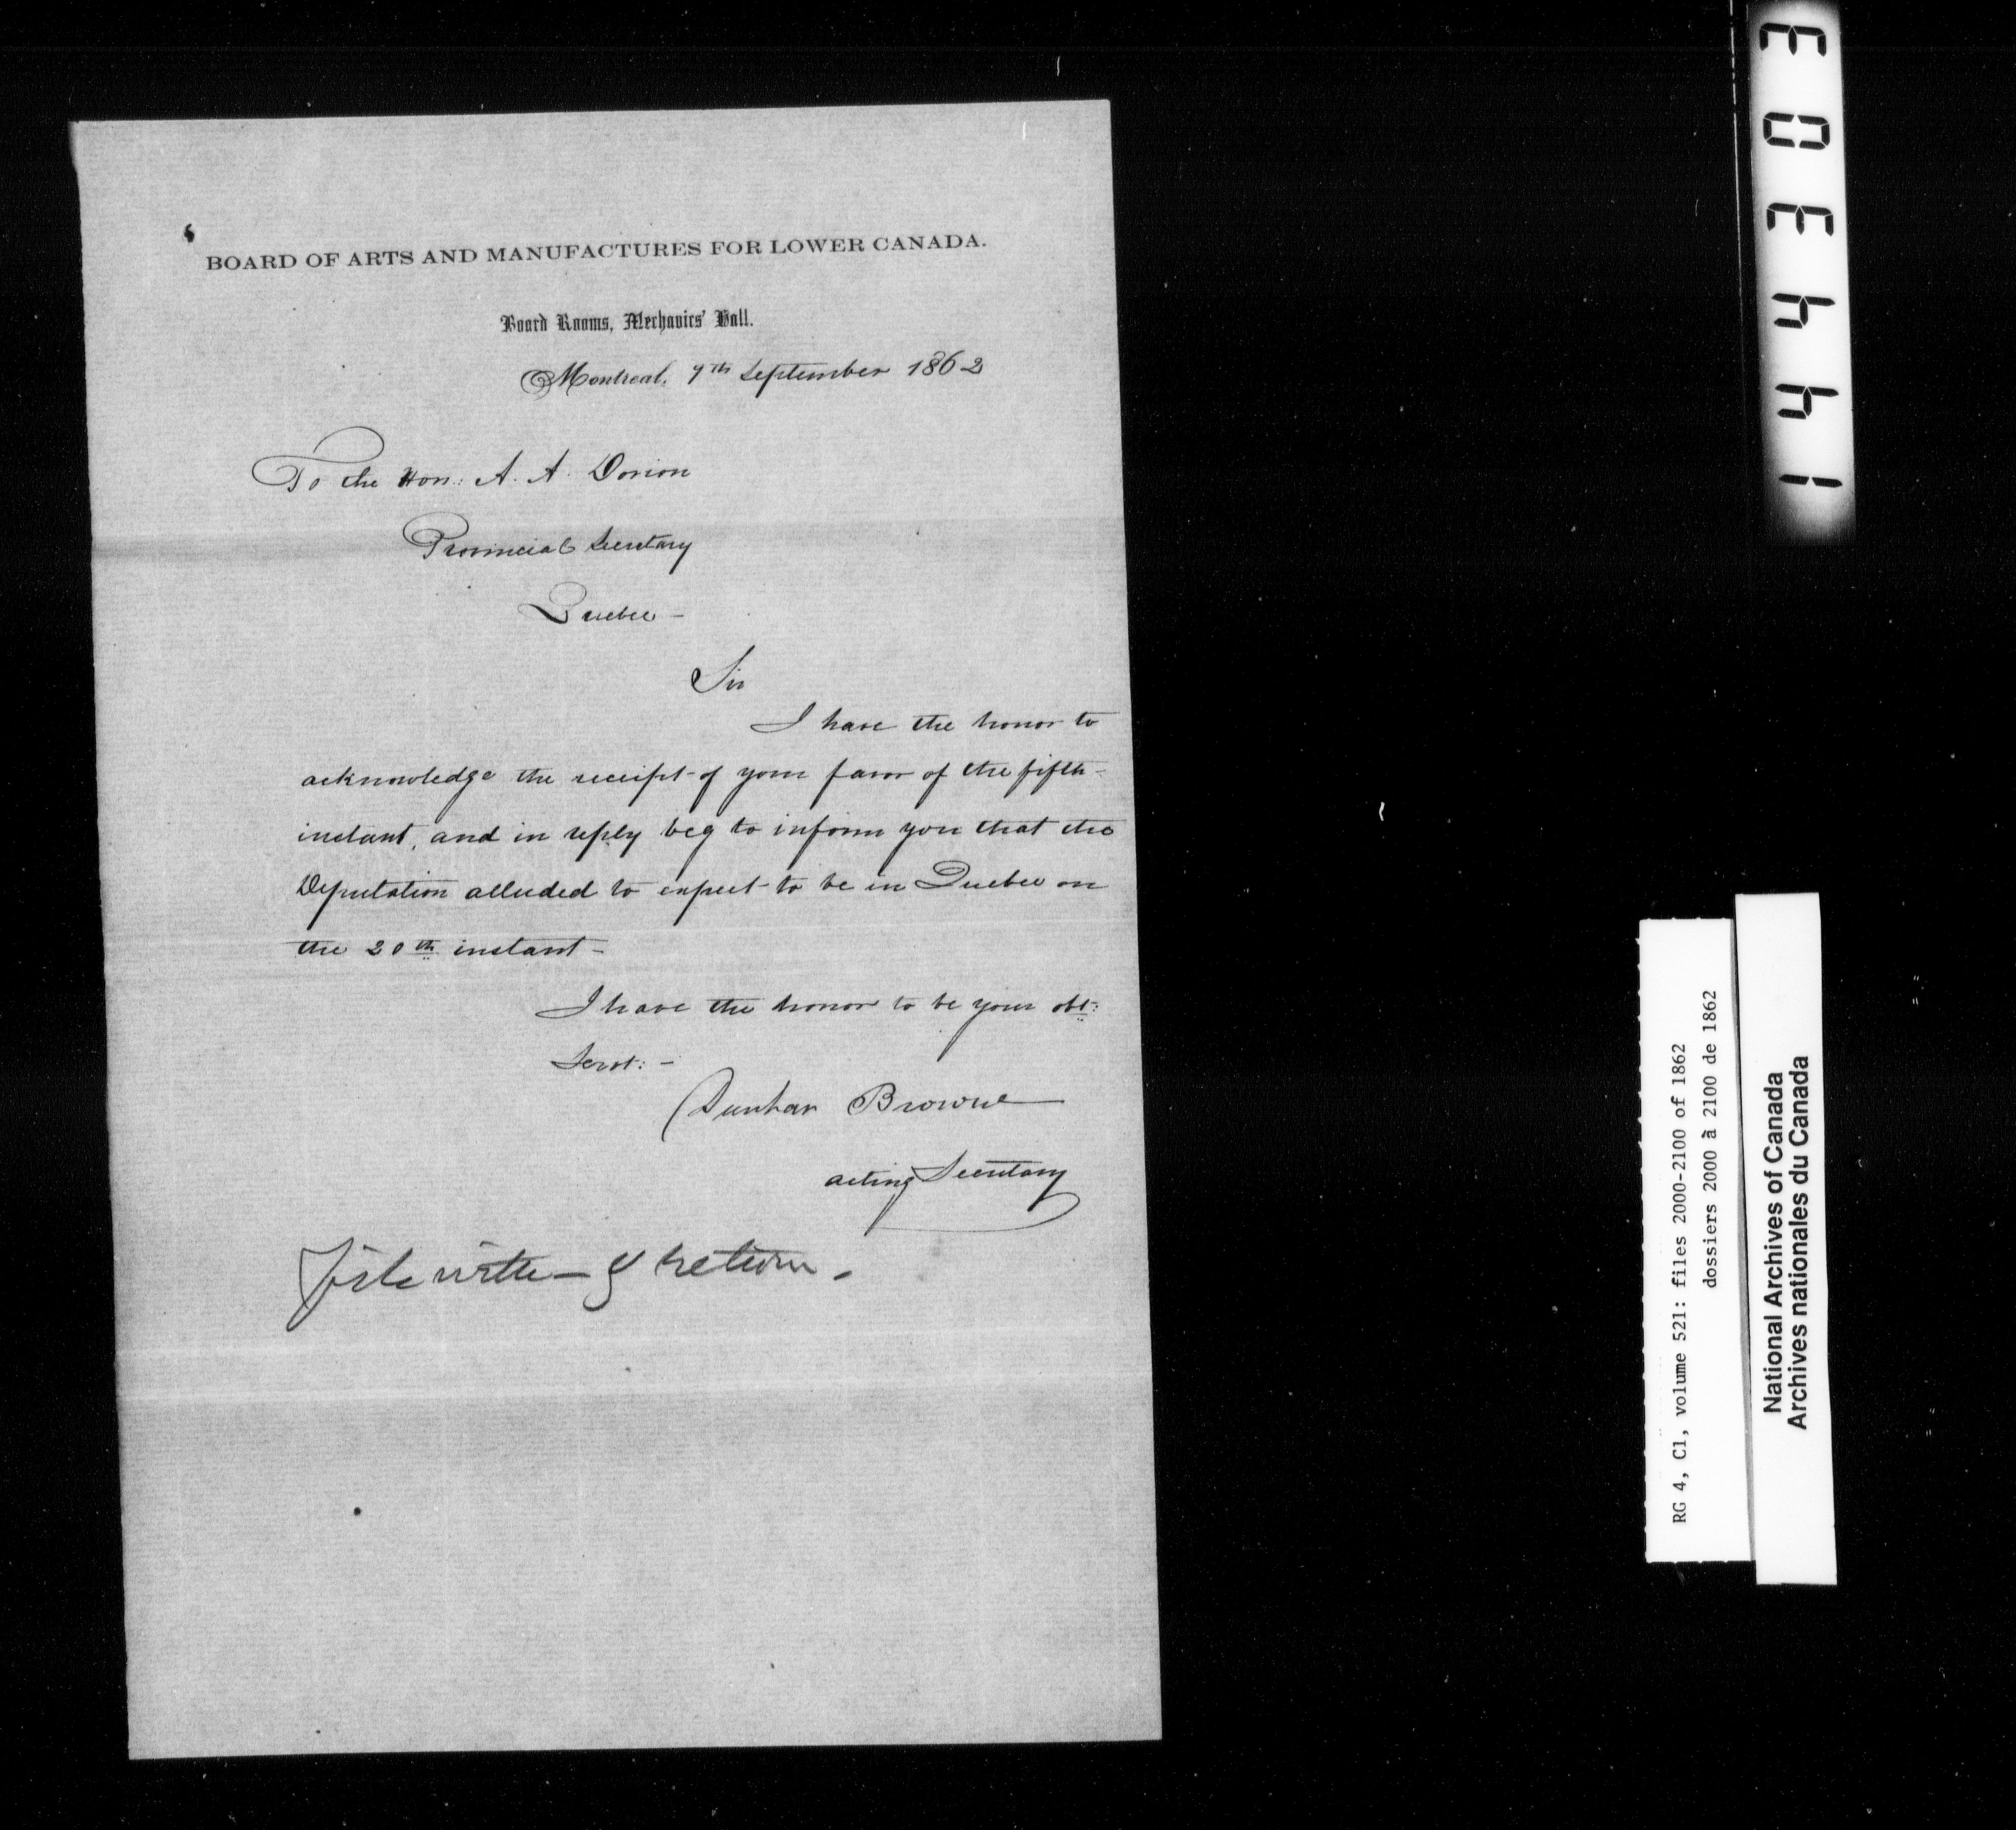 BOARD OF ARTS AND MANUFACTURES FOR LOWER CANADA.
Board Rooms, Mechanics' Hall.
Montreal, 9th September 1862
To the Hon: A. A. Dorion
Provincial Secretary
Quebec -
Sir
I have the honor to
acknowledge the receipt of your favor of the fifth
instant, and in reply beg to inform you that the
Deputation alluded to expect to be in Quebec on
the 20th instant -
I have the honor to be your obt:
Servt: -
Dunbar Browne
acting Secretary
File with - & return -
RG 4, C1, volume 521: files 2000-2100 of 1862
dossiers 2000 à 2100 de 1862
National Archives of Canada
Archives nationales du Canada